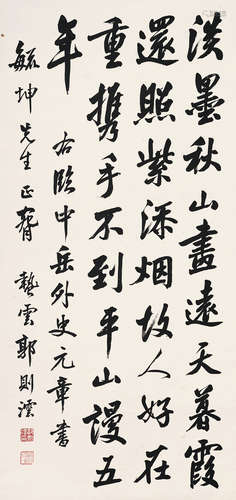 淡墨秋山畫遠天暮霞
還照紫添烟故人好在
重携手不到平山謾五
年
右臨中岳外史元章書
毓坤先生正腕 蟄雲郭則澐